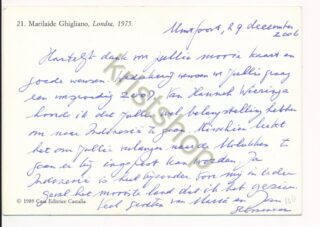 21. Marilaide Ghigliano, Londra, 1975.
Amersfoort, 29 december
2006
Hartelijk dank om jullie mooie kaart en
goede wensen. wensen we jullie graag
een voorspoedig 2007. Van Hannah Wieringa
hoorde ik dat jullie wel belangstelling hebben
om naar Indonesia te gaan. Misschien lukt
het om jullie verlangen naar de Molukken te
gaan er bij ingepast kan worden. Ja
Indonesia is heel bijzonder voor mij en in ieder
geval het mooiste land dat ik heb gezien.
Veel groeten van en Jan
© 1989 Casa Editrice Castalia
kristshop